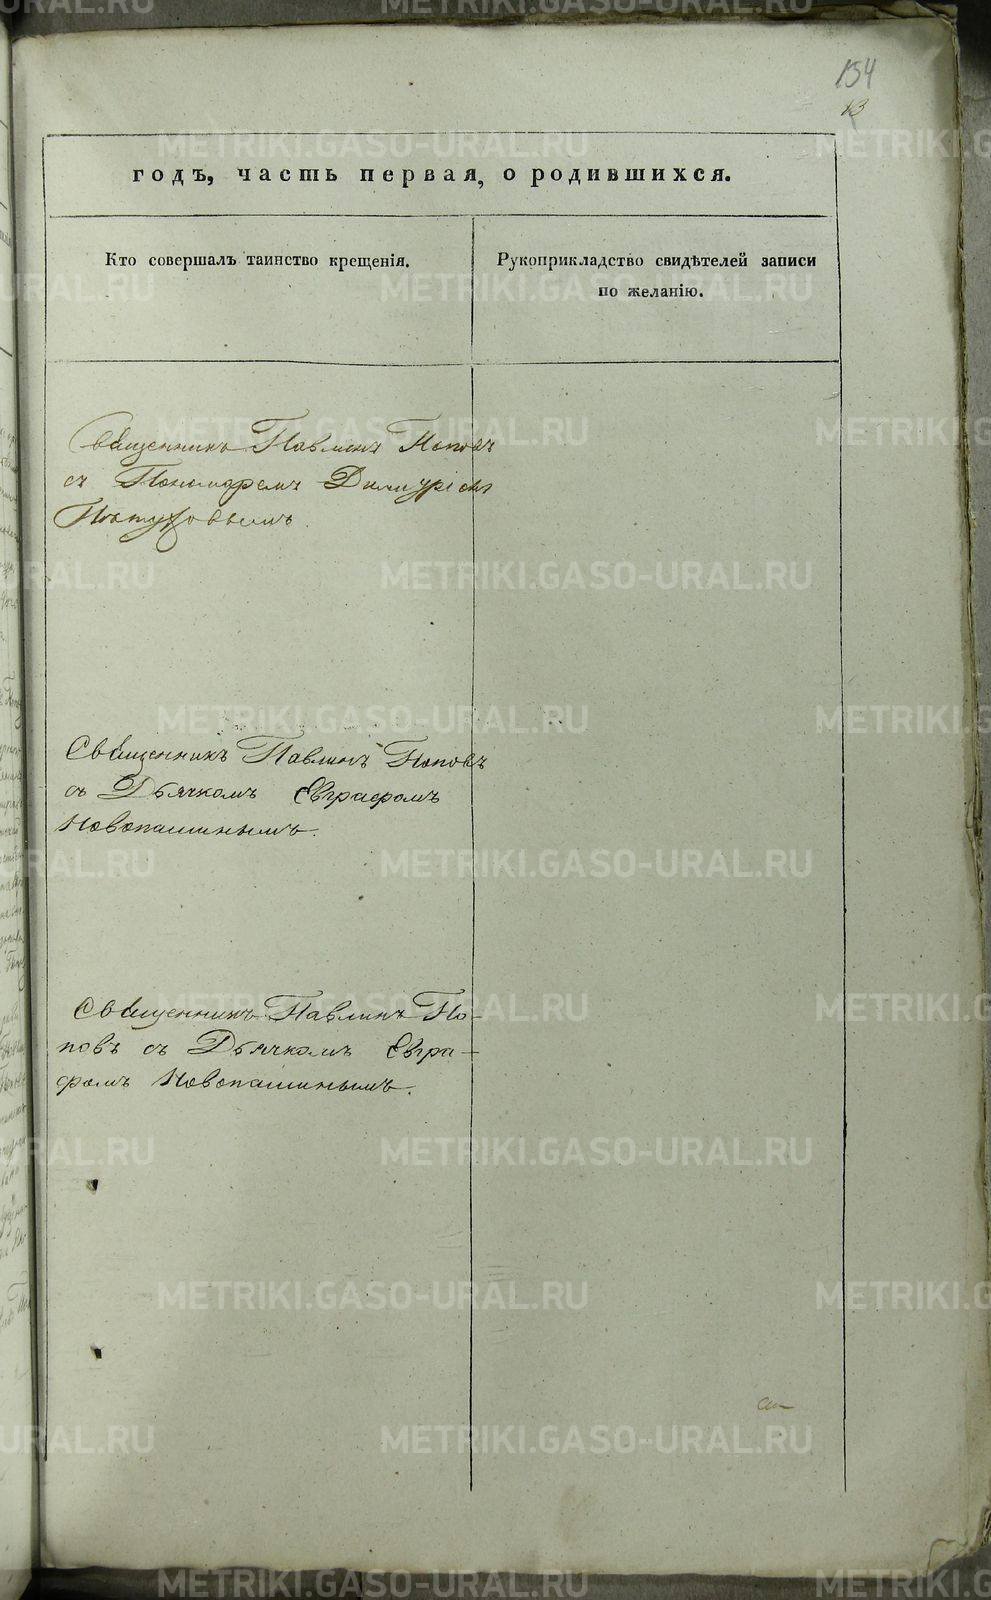 154
13
годъ, часть первая, о родившихся.
Кто совершалъ таинство крещенія.
Рукоприкладство свидѣтелей записи
по желанію.
Священникъ Павлинъ Поповъ
съ Пономаремъ Димитріемъ
Пѣтуховымъ
Священникъ Павлинъ Поповъ
съ Дьячкомъ Евграфомъ
Новопашинымъ.
Священникъ Павлинъ По-
повъ съ Дьячкомъ Евгра-
фомъ Новопашинымъ.
METRIKI.GASO-URAL.RU